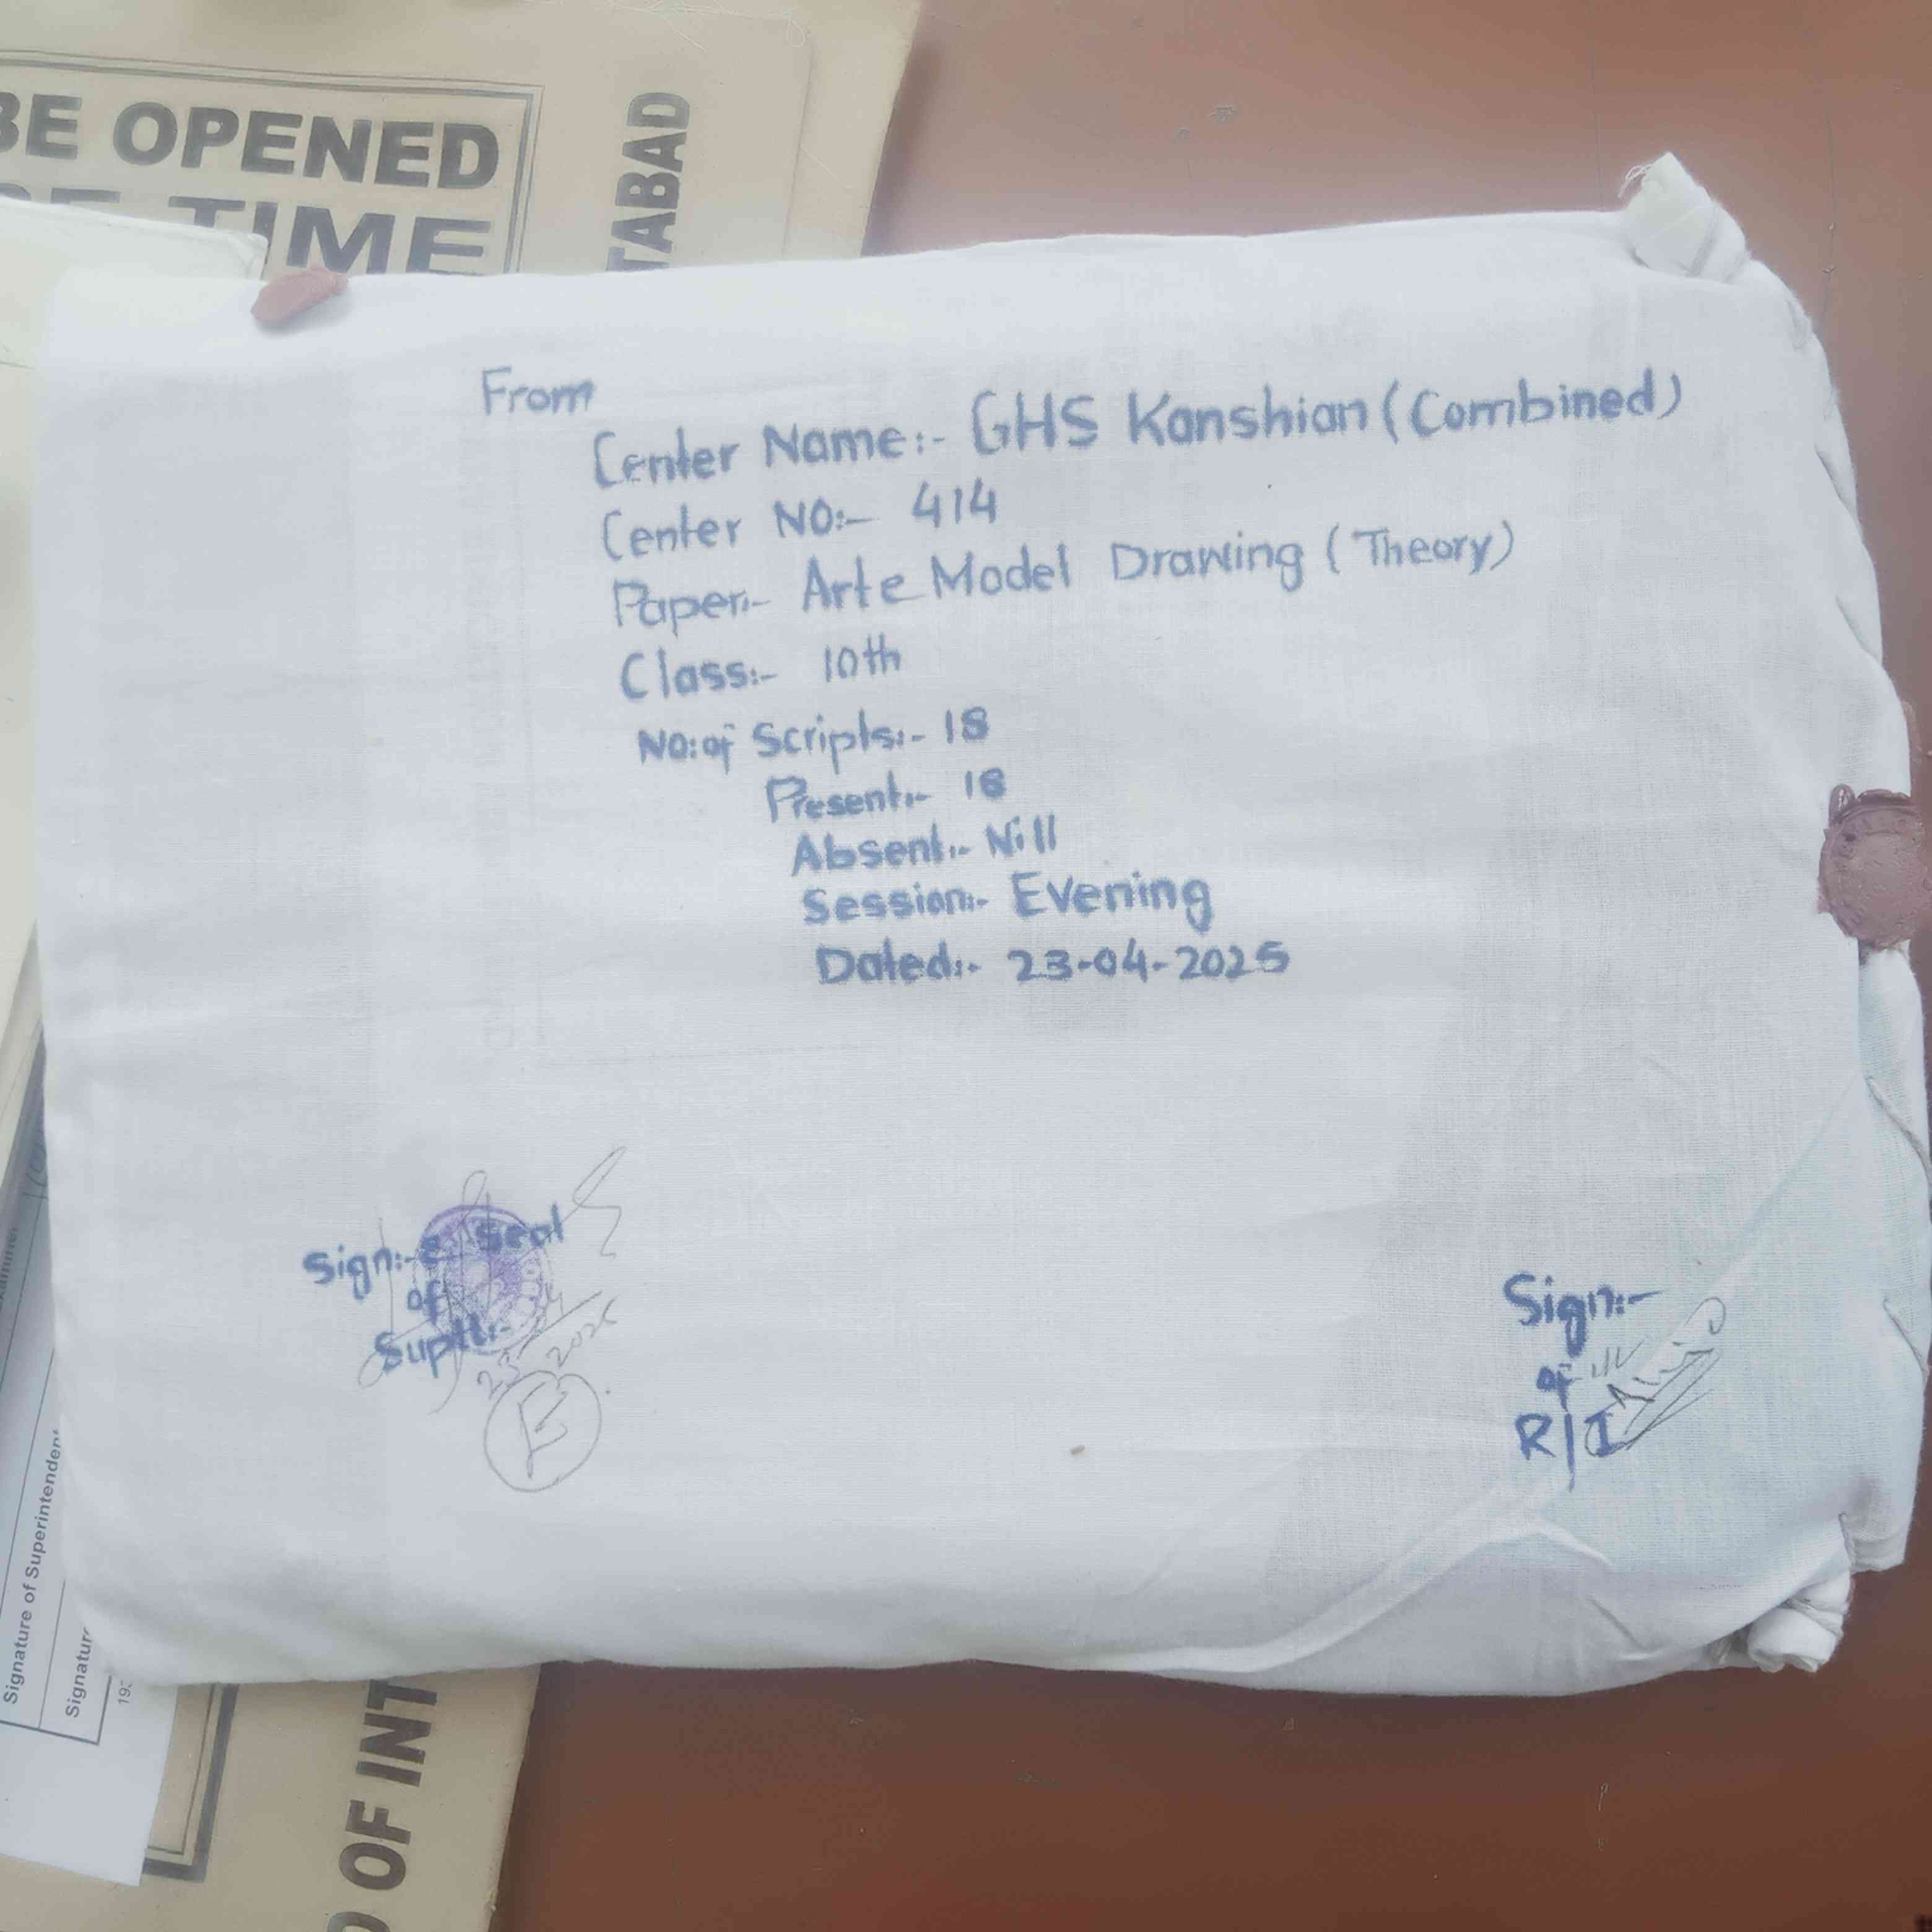 BE OPENED
TIME
TABAD
From
Center Name:- GHS Kanshian (Combined)
Center NO:- 414
Paper:- Arte Model Drawing (Theory)
Class:- 10th
NO: of Scripts:- 18
Present:- 18
Absent:- Nill
Session:- Evening
Dated:- 23-04-2025
Sign:- & Seal
of
Suptt:-
E
Sign:-
of
R/I
Signature of Superintendent
Signature
OF INT